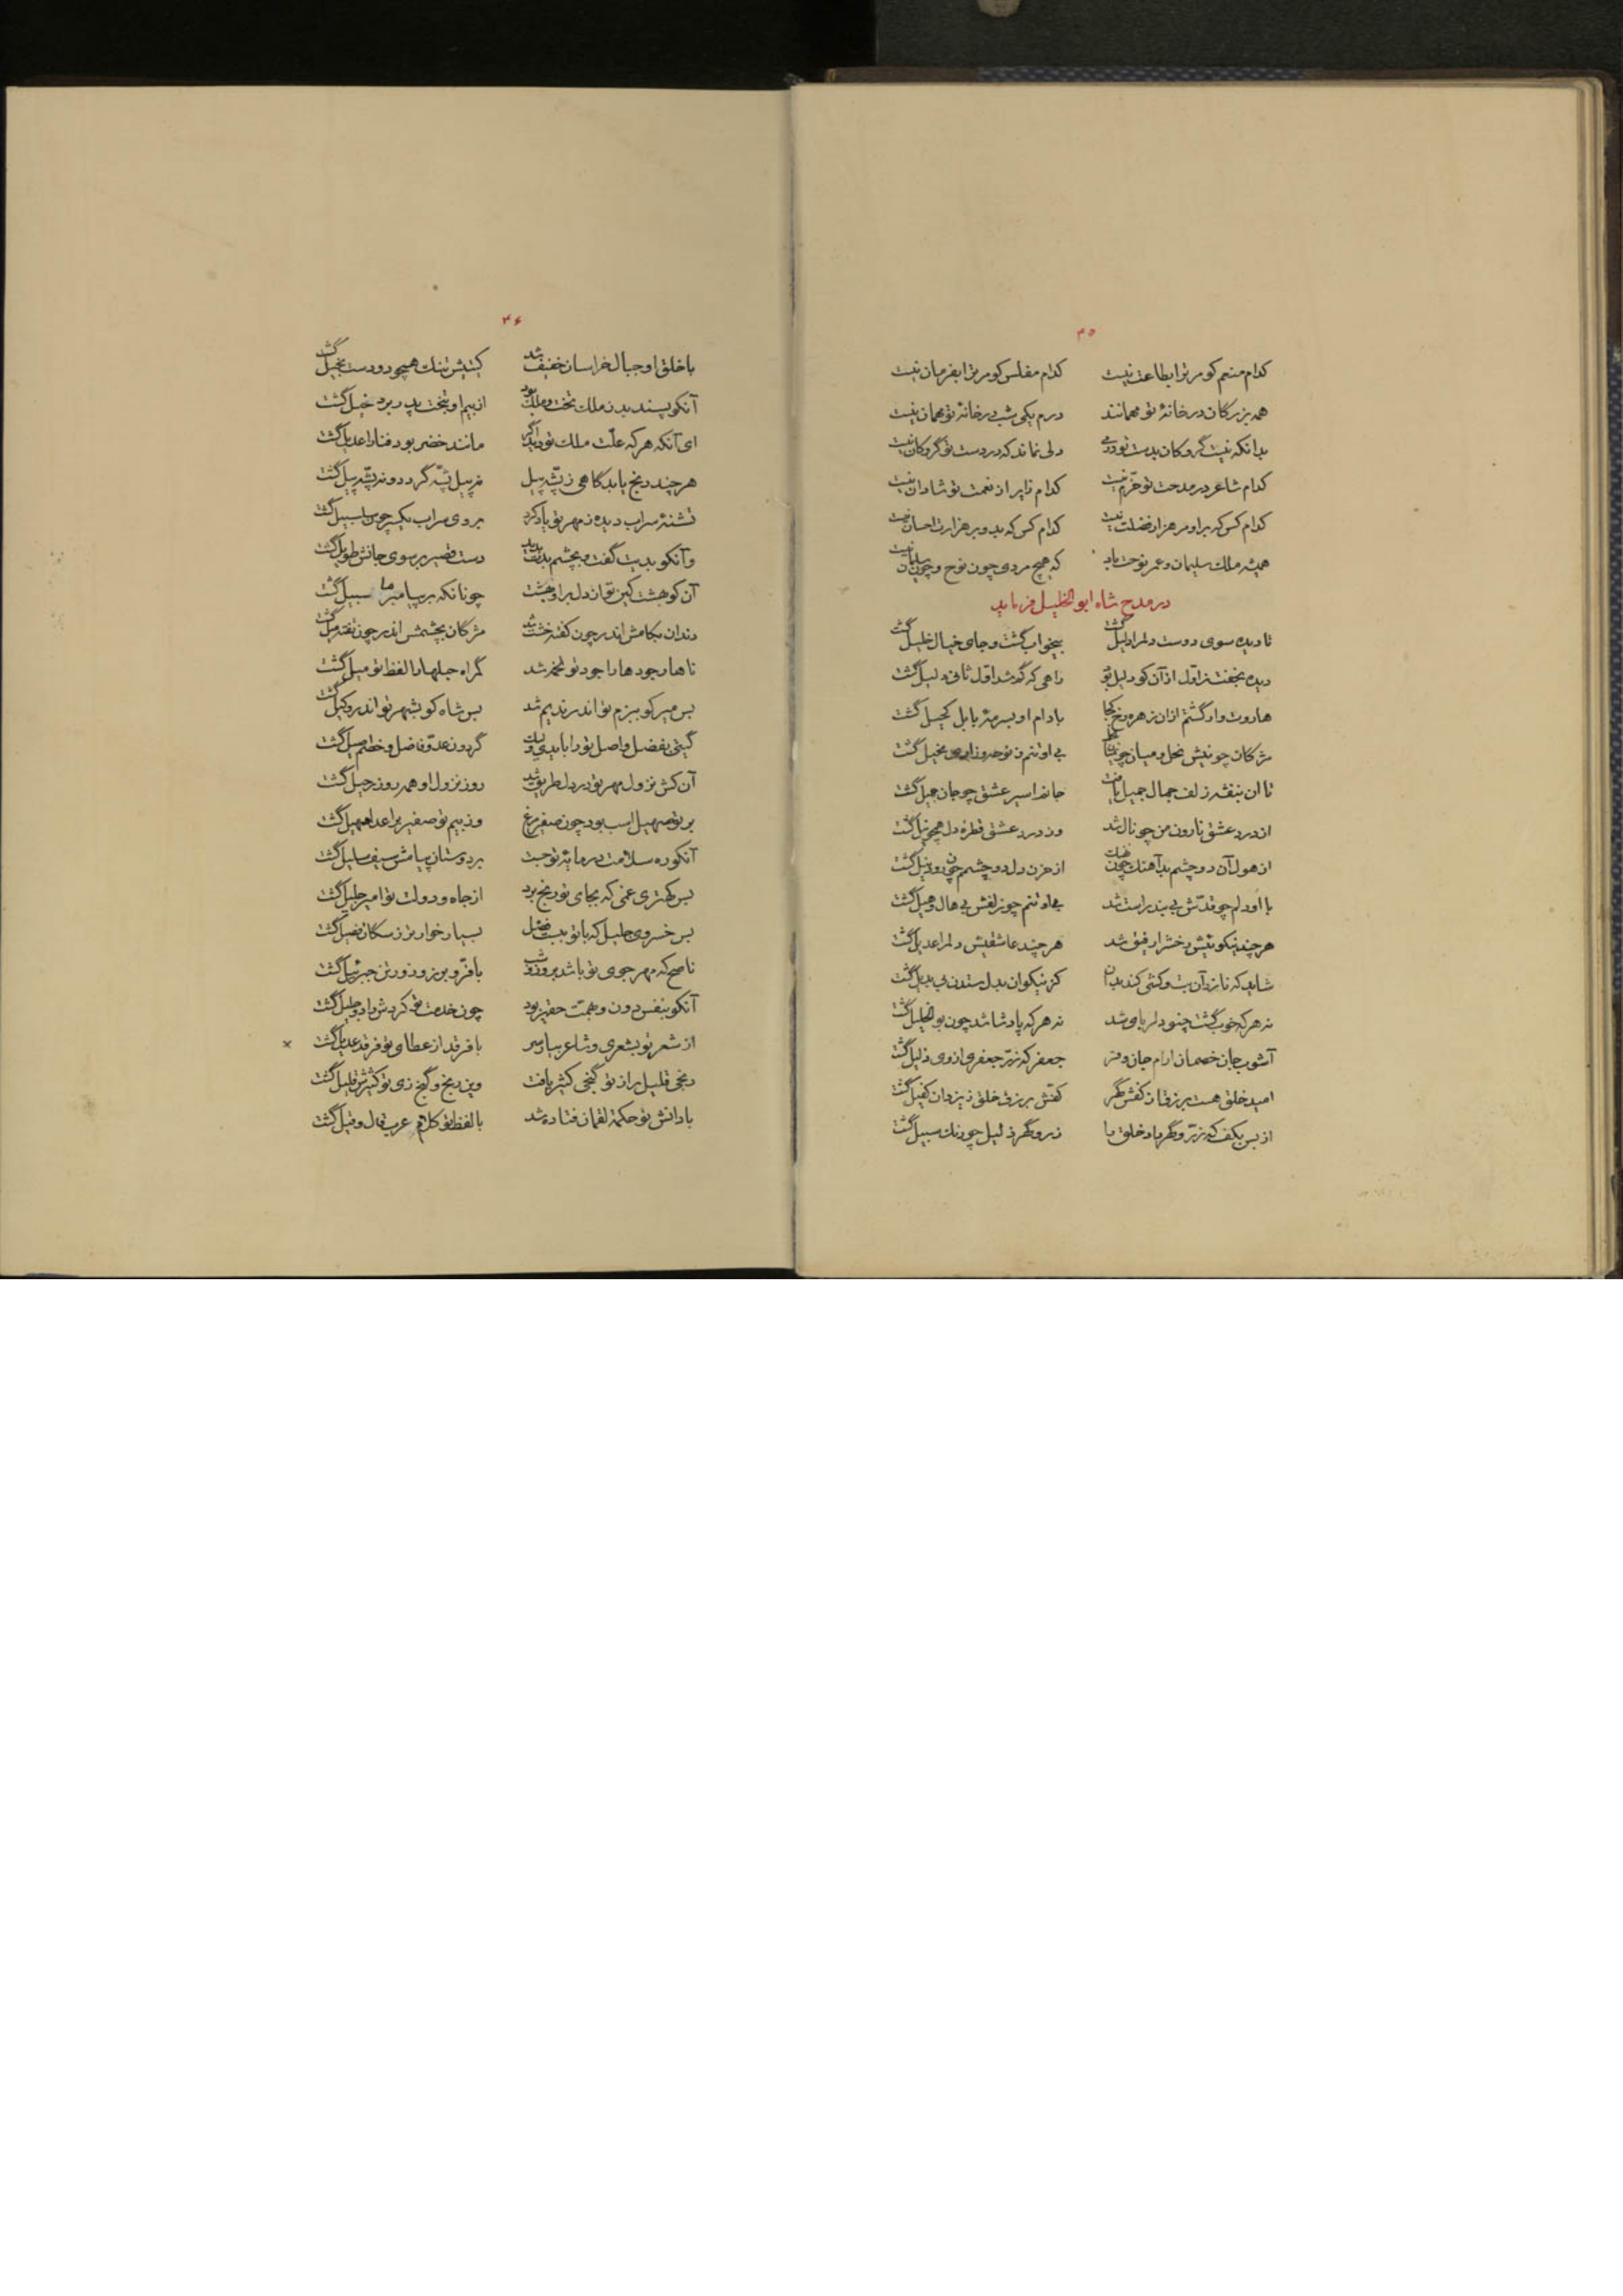 ۳۵
کدام منعم کو مر ترا بطاعت نیست کدام مفلس کو مر ترا بفرمان نیست
همه بزرگان در خانهٔ تو مهمانند درم یکی شب در خانهٔ تو مهمان نیست
بدانکه نیست گروکان بدست تو درمی دلی نماند که در دست تو گروکان نیست
کدام شاعر در مدحت تو خرّم نیست کدام زایر از نعمت تو شادان نیست
کدام کس که براو مر هزار فضلت نیست کدام کس که بدو بر هزارت احسان نیست
همیشه ملک سلیمان و عمر نوحت باد که هیچ مردی چون نوح و چون سلیمان نیست
در مدح شاه ابوالخلیل فرماید
تا دیده سوی دوست دلمرا دلیل گشت بیخواب گشت و جای خیال خلیل گشت
دیده بخفت ز اوّل از آن کو دلیل بود راهی که گم شد اوّل ثانی دلیل گشت
هاروت وار گشتم ازان زهره رخ کجا بادام او بسرمهٔ بابل کحیل گشت
مژکان چو نیش نحل و میان بی او تنم
تا ان بنفشه زلف جمال جمیل یافت جانم اسیر عشق چو جان جمیل گشت
از درد عشق نارون من چو نال شد وز درد عشق قطرهٔ دل همچو نیل گشت
از هول آن دو چشم بدآهنک چون از حزن دل دو چشمم چون رود نیل گشت
با او دلم چو قدّش بی بند راست شد بی او تنم چو زلفش بی هال و هیل گشت
هر چند نیکوئیش رخش را رفیق شد هر چند عاشقیش دلمرا عدیل گشت
شاید که نازد آن بت و کشی کند بدان کز نیکوان بدل ستدن بی بدیل گشت
نه هر که خوب گشت چنو دلربای شد نه هر که پادشا شد چون بوالخلیل گشت
آشوب جان خصمان ارام جان دوستان جعفر که زرّ جعفری ازوی ذلیل گشت
امید خلق هست برزق از کفش مگر کفّش برزق خلق ز یزدان کفیل گشت
از بس بکف که زرّ و گهر داد خلق را زرّ و گهر ذلیل چو رنک سبیل گشت
۳۶
با خلق او جبال خراسان خفیف شد گیتیش تنک همچو دو دست بخیل گشت
آنکو پسند بد ز ملک تخت و ملک بود از بیم او بتخت پدر برد خیل گشت
ای آنکه هر که علّت ملک تو دید اگر مانند خضر بود فنا را عدیل گشت
هر چند رنج یابد گاهی ز پشّه پیل نه پیل پشّه گردد و نه پشّه پیل گشت
تشنهٔ سراب دیده ز مهر تو یاد کرد بر وی سراب یکسر چون سلسبیل گشت
وآنکو بدیت گفت و بچشم بدت بدید دست قصیر بر سوی جانش طویل گشت
آن کو بهشت کین تو از دل براو بهشت چونانکه بر پیامبر ما سبیل گشت
دندان بکامش اندر چون کفته خشت شد مژکان بچشمش اندر چون تفته میل گشت
ناهار جودها را جود تو طعمه شد گمراه جهلها را لفظ تو میل گشت
بس میر کو ببزم تو اندر ندیم شد بس شاه کو بشهر تو اندر وکیل گشت
گیتی بفضل و اصل تو را باید و لیک گردون عدوّ فاضل و خصم اصیل گشت
آن کش نزول مهر تو در دل طریق شد روز نزول او همه روز رحیل گشت
بر تو صهیل اسب بود چون صفیر مرغ وز بیم تو صفیر بر اعدا صهیل گشت
آنکو ره سلامت درمانهٔ تو جست بر دوستان پیامش سیف سلیل گشت
بس کهتری غمی که بجای تو رنج برد از جاه و دولت تو امیر جلیل گشت
بس خسروی جلیل که با تو ببست بسیار خوارتر ز سکان گشت
ناصح که مهر جوی تو باشد بروز و شب با فرّ و برز و زورتن جبرئیل گشت
آنکو بنفس دون و بهمّت حقیر بود چون خدمت تو کردش راد و جلیل گشت
از شعر تو بشعری و شاعر سپاد سر با فرقد از عطای تو فرقد عدیل گشت
رنجی قلیل برد از تو گنجی کثیر یافت وین رنج و گنج زی تو کثیرش قلیل گشت
با دانش تو حکمة لقمان فتاده شد با لفظ تو کلام عرب قال و قیل گشت